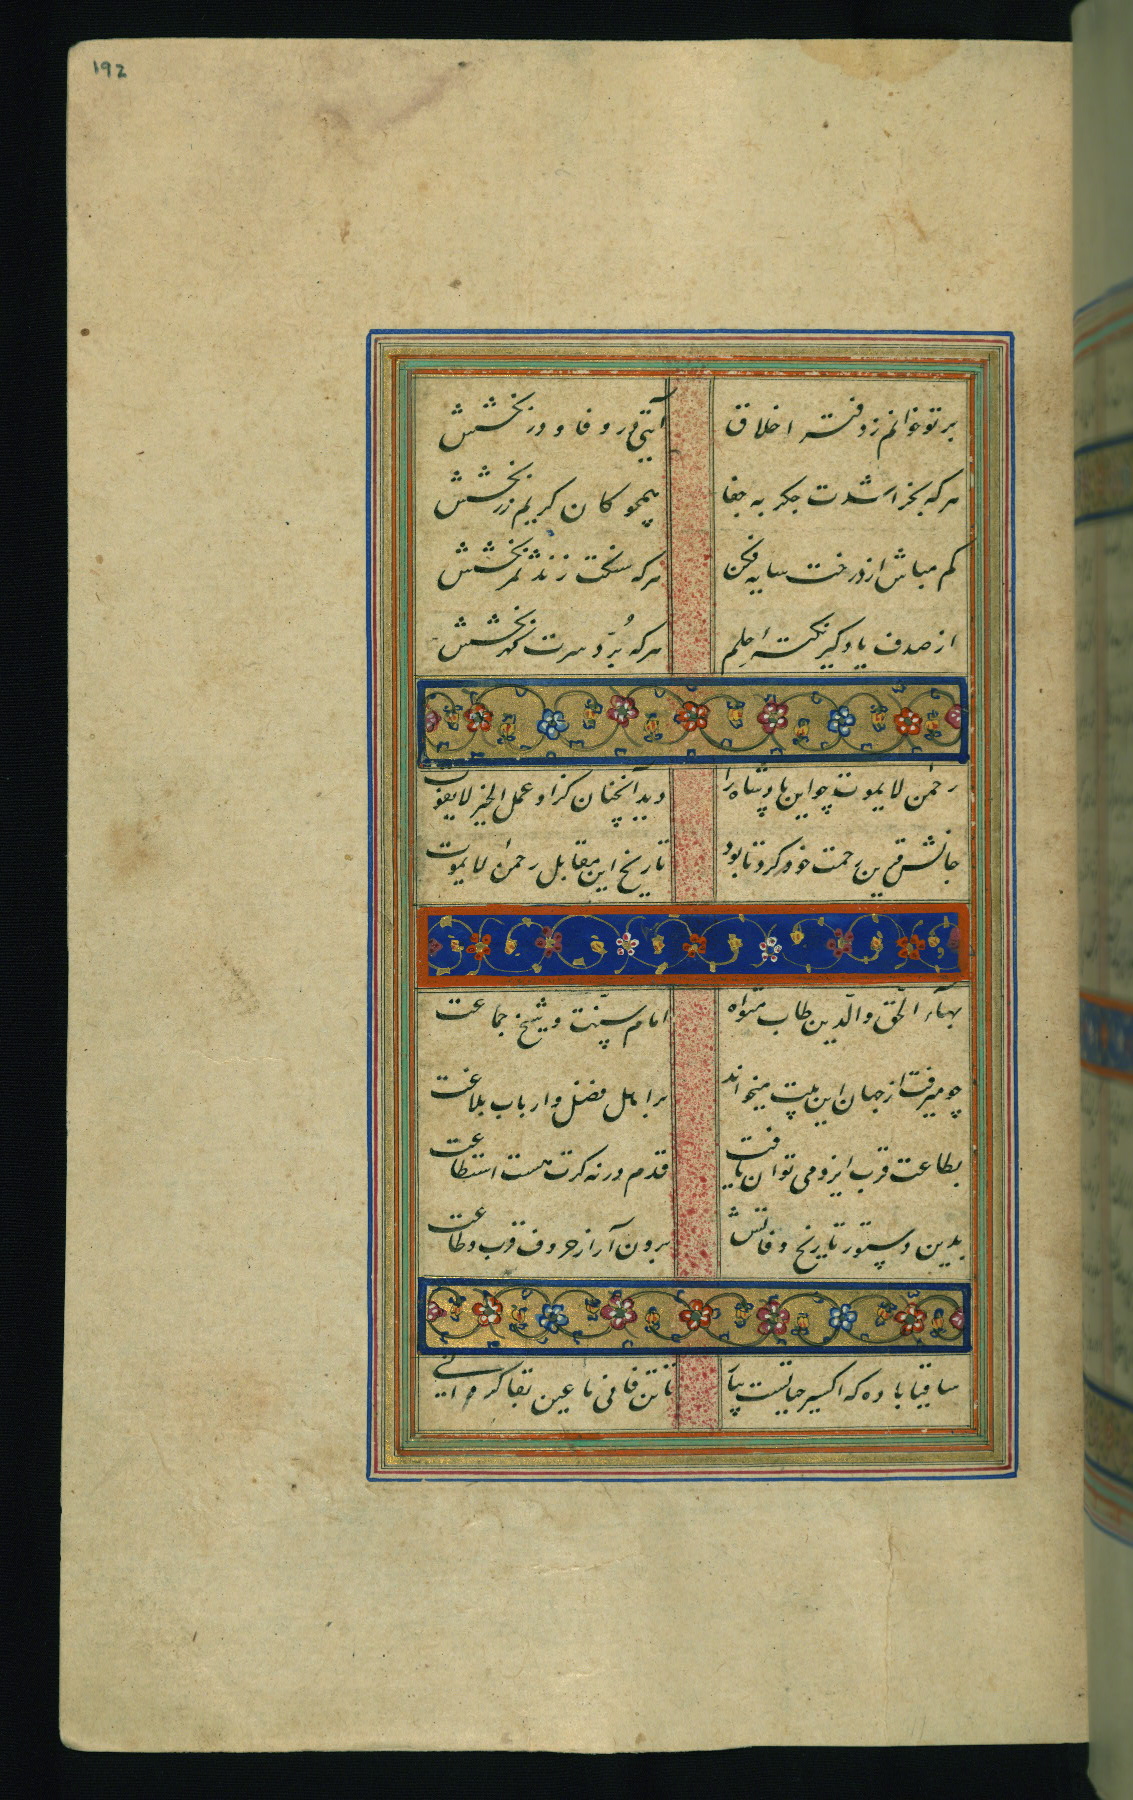 ۱۹۲
بر تو خوانم ز دفتر اخلاق
آیتی در وفا و در بخشش
هرکه بخراشدت جگر به جفا
همچو کان کریم زر بخشش
کم مباش از درخت سایه فکن
هرکه سنگت زند ثمر بخشش
از صدف یاد گیر نکتهٔ حلم
هرکه بُرّد سرت گهر بخشش
رحمٰن لا یموت چو این پادشاه را
دید آنچنان کزو عمل الخیر لا یفوت
جانش قرین رحمت خود کرد تا بود
تاریخ این مقابل رحمٰن لا یموت
بهآء الحق والدّین طاب مثواه
امام سنّت و شیخ جماعت
چو میرفت از جهان این بیت میخواند
بر اهل فضل و ارباب بلاغت
بطاعت قرب ایزد می توان یافت
قدم در نه کرت هست استطاعت
بدین دستور تاریخ وفاتش
برون آر از حروف قرب و طاعت
ساقیا باده که اکسیر حیاتست بیآ
تا تن فانی ما عین بقا کردانی